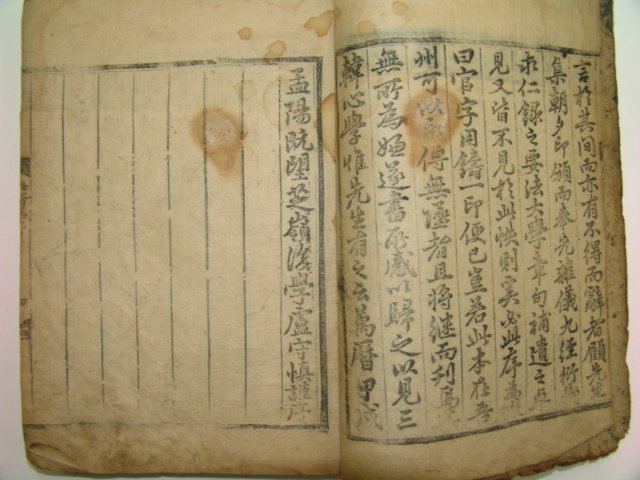 言於其間而亦有不得而辭者顧先生
集朝夕印頒而奉先雜儀九經衍義
求仁錄之要法大學章句補遺之
見又皆不見於此帙則奚必此序為
曰官字用鑄一印便已豈若此本在吾
州可以印傳無彊者且將継而刊焉
無所為嫌遂書所感以歸之以見三
韓心學惟先生有之云萬曆甲戌
孟陽既望芝嶺後學盧守慎謹序